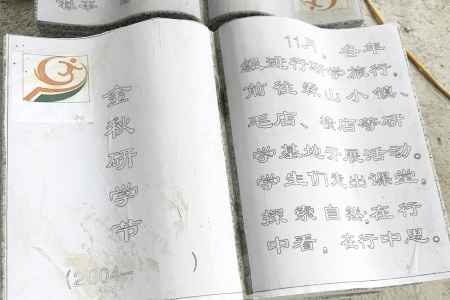 金秋研学节
(2004—
11月，各年
级进行研学旅行，
前往梁山小镇、
毛店、横店等研
学基地开展活动。
学生们走出课堂，
探索自然;在行
中看，在行中思。